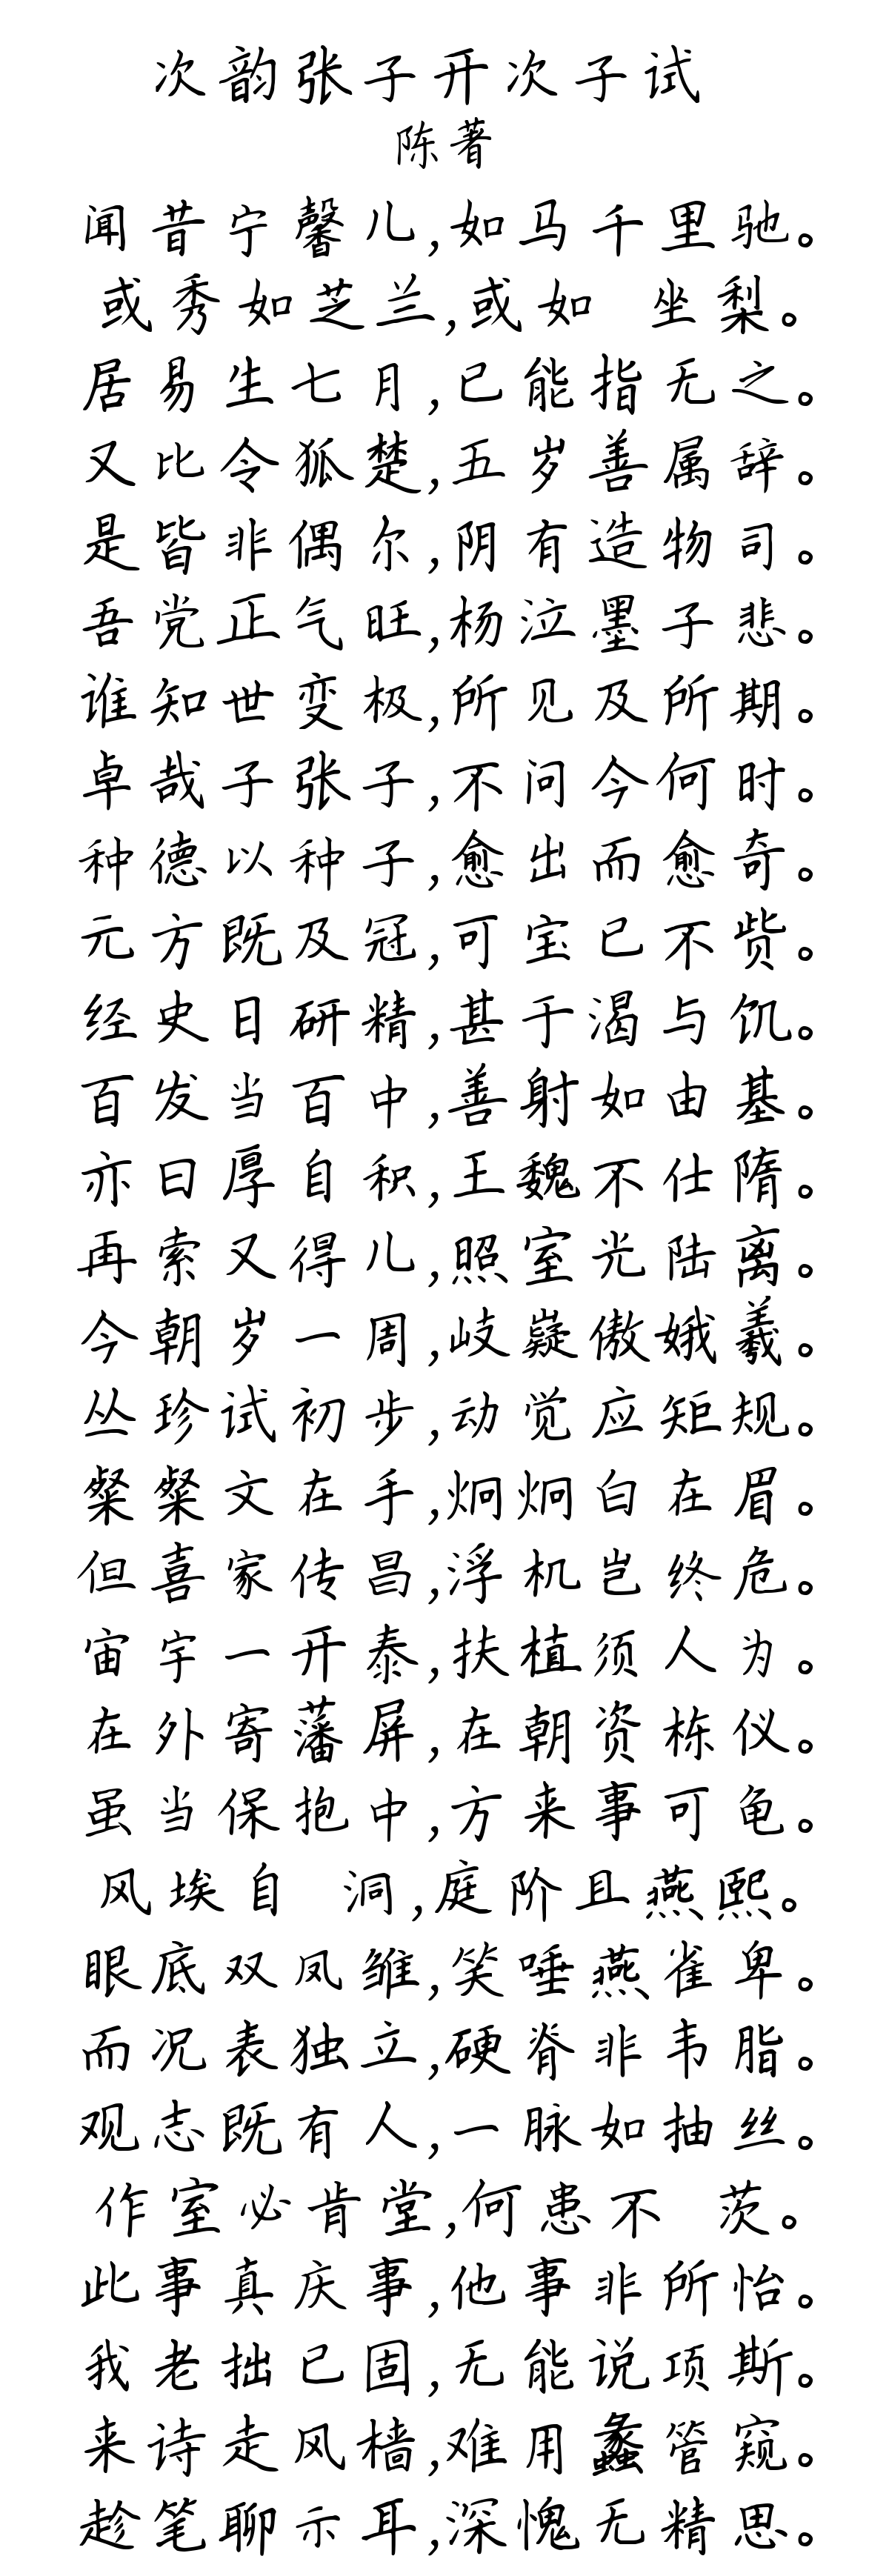 次韵张子开次子试
陈著
闻昔宁馨儿,如马千里驰。
或秀如芝兰,或如 坐梨。
居易生七月,已能指无之。
又比令狐楚,五岁善属辞。
是皆非偶尔,阴有造物司。
吾党正气旺,杨泣墨子悲。
谁知世变极,所见及所期。
卓哉子张子,不问今何时。
种德以种子,愈出而愈奇。
元方既及冠,可宝已不赀。
经史日研精,甚于渴与饥。
百发当百中,善射如由基。
亦曰厚自积,王魏不仕隋。
再索又得儿,照室光陆离。
今朝岁一周,歧嶷傲娥羲。
丛珍试初步,动觉应矩规。
粲粲文在手,炯炯白在眉。
但喜家传昌,浮机岂终危。
宙宇一开泰,扶植须人为。
在外寄藩屏,在朝资栋仪。
虽当保抱中,方来事可龟。
风埃自 洞,庭阶且燕熙。
眼底双凤雏,笑唾燕雀卑。
而况表独立,硬脊非韦脂。
观志既有人,一脉如抽丝。
作室必肯堂,何患不 茨。
此事真庆事,他事非所怡。
我老拙已固,无能说项斯。
来诗走风樯,难用蠡管窥。
趁笔聊示耳,深愧无精思。